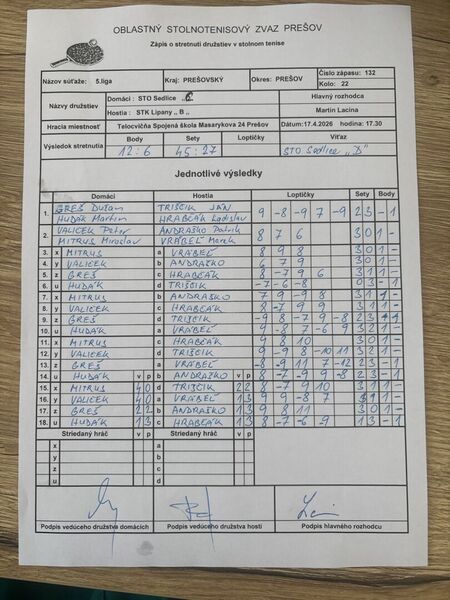 OBLASTNÝ STOLNOTENISOVÝ ZVAZ PREŠOV
Zápis o stretnutí družstiev v stolnom tenise
Názov súťaže: 5.liga Kraj: PREŠOVSKÝ Okres: PREŠOV Číslo zápasu: 132
Kolo: 22
Názvy družstiev Domáci : STO Sedlice Hlavný rozhodca
Hostia : STK Lipany „ B „ Martin Lacina
Hracia miestnosť Telocvičňa Spojená škola Masarykova 24 Prešov Dátum:17.4.2026 hodina: 17.30
Výsledok stretnutia Body Sety Loptičky Víťaz
12:6 45:27 STO Sedlice „D"
Jednotlivé výsledky
Domáci Hostia Loptičky Sety Body
1. GREŠ Dušan TRIŠČIK JÁN 9 -8 -9 7 -9 2 3 - 1
HUDÁK Martin HRABČÁK Ladislav
2. VALIČEK Peter ANDRAŠKO Patrik 8 7 6 3 0 1 -
MITRUS Miroslav VRÁBEĽ Marek
3. x MITRUS a VRÁBEĽ 8 9 8 3 0 1 -
4. y VALIČEK b ANDRAŠKO 6 7 9 3 0 1 -
5. z GREŠ c HRABČÁK 8 -7 9 6 3 1 1 -
6. u HUDÁK d TRIŠČIK -7 -6 -8 0 3 - 1
7. x MITRUS b ANDRAŠKO 7 9 -9 8 3 1 1 -
8. y VALIČEK c HRABČÁK 8 -7 9 9 3 1 1 -
9. z GREŠ d TRIŠČIK -9 8 -7 9 -8 2 3 - 1
10. u HUDÁK a VRÁBEĽ 9 -8 7 -6 9 3 2 1 -
11. x MITRUS c HRABČÁK 9 8 10 3 0 1 -
12. y VALIČEK d TRIŠČIK 9 -9 8 -10 11 3 2 1 -
13. z GREŠ a VRÁBEĽ -8 -9 11 7 -12 2 3 - 1
14. u HUDÁK v p b ANDRAŠKO v p 8 -7 -9 9 -8 2 3 - 1
15. x MITRUS 4 0 d TRIŠČIK 2 2 8 -7 9 10 3 1 1 -
16. y VALIČEK 4 0 a VRÁBEĽ 1 3 9 9 -8 7 3 1 1 -
17. z GREŠ 2 2 b ANDRAŠKO 1 3 9 8 11 3 0 1 -
18. u HUDÁK 1 3 c HRABČÁK 1 3 8 -7 -6 -9 1 3 - 1
Striedaný hráč v p Striedaný hráč v p
x a
y b
z c
u d
Podpis vedúceho družstva domácich Podpis vedúceho družstva hostí Podpis hlavného rozhodcu